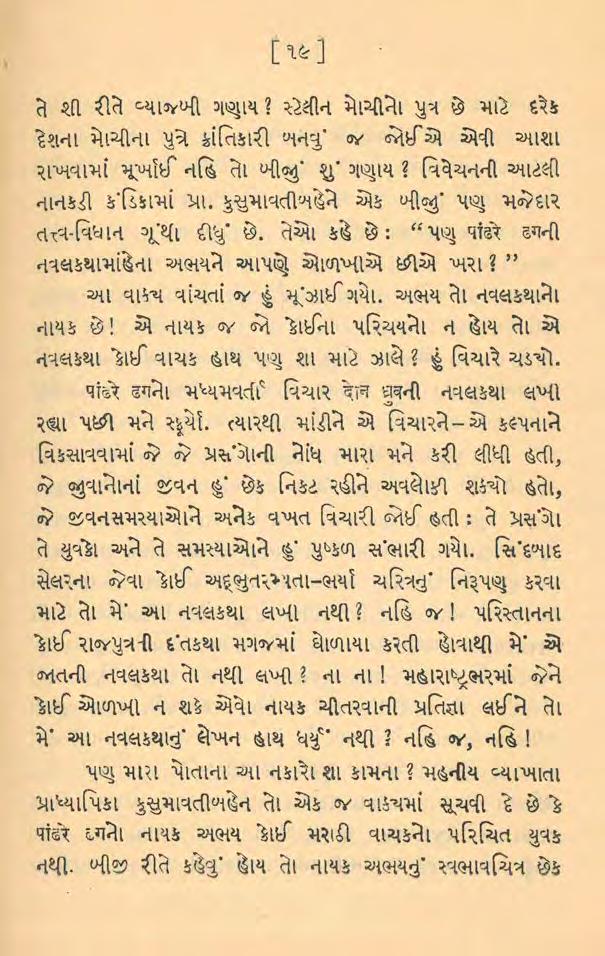 [ ૧૯ ]
તે શી રીતે વ્યાજબી ગણાય ? સ્ટેલીન મોચીનો પુત્ર છે માટે દરેક
દેશના મોચીના પુત્રે ક્રાંતિકારી બનવું જ જોઈએ એવી આશા
રાખવામાં મૂર્ખાઈ નહિ તો બીજું શું ગણાય ? વિવેચનની આટલી
નાનકડી કંડિકામાં પ્રા. કુસુમાવતીબહેને એક બીજું પણ મજેદાર
તત્ત્વ-વિધાન ગૂંથી દીધું છે. તેઓ કહે છે : “ પણ पांढरे ढगની
નવલકથામાંહેના અભયને આપણે ઓળખીએ છીએ ખરા ? ”
આ વાકય વાંચતાં જ હું મૂંઝાઈ ગયો. અભય તો નવલકથાનો
નાયક છે ! એ નાયક જ જો કોઈના પરિચયનો ન હોય તો એ
નવલકથા કોઈ વાચક હાથ પણ શા માટે ઝાલે ? હું વિચારે ચડચો.
पांढरे ढगનો મધ્યમવર્તી વિચાર दोन ध्रुवની નવલકથા લખી
રહ્યા પછી મને સ્ફૂર્યો. ત્યારથી માંડીને એ વિચારને–એ કલ્પનાને
વિકસાવવામાં જે જે પ્રસંગોની નોંધ મારા મને કરી લીધી હતી,
જે જુવાનોનાં જીવન હું છેક નિકટ રહીને અવલોકી શકચો હતો,
જે જીવનસમસ્યાઓને અનેક વખત વિચારી જોઈ હતી : તે પ્રસંગો
તે યુવકો અને તે સમસ્યાઓને હું પુષ્કળ સંભારી ગયો. સિંદબાદ
સેલરના જેવા કોઈ અદ્ભુતરમ્યતા–ભર્યા ચરિત્રનું નિરૂપણ કરવા
માટે તો મેં આ નવલકથા લખી નથી ? નહિ જ ! પરિસ્તાનના
કોઈ રાજપુત્રની દંતકથા મગજમાં ઘોળાયા કરતી હોવાથી મેં એ
જાતની નવલકથા તો નથી લખી ? ના ના ! મહારાષ્ટ્રભરમાં જેને
કોઈ ઓળખી ન શકે એવો નાયક ચીતરવાની પ્રતિજ્ઞા લઈને તો
મેં આ નવલકથાનું લેખન હાથ ધર્યું નથી ? નહિ જ, નહિ !
પણ મારા પોતાના આ નકારો શા કામના ? મહનીય વ્યાખાતા
પ્રાધ્યાપિકા કુસુમાવતીબહેન તો એક જ વાકયમાં સૂચવી દે છે કે
पांढरे ढगનો નાયક અભય કોઈ મરાઠી વાચકનો પરિચિત યુવક
નથી. બીજી રીતે કહેવું હોય તો નાયક અભયનું સ્વભાવચિત્ર છેક